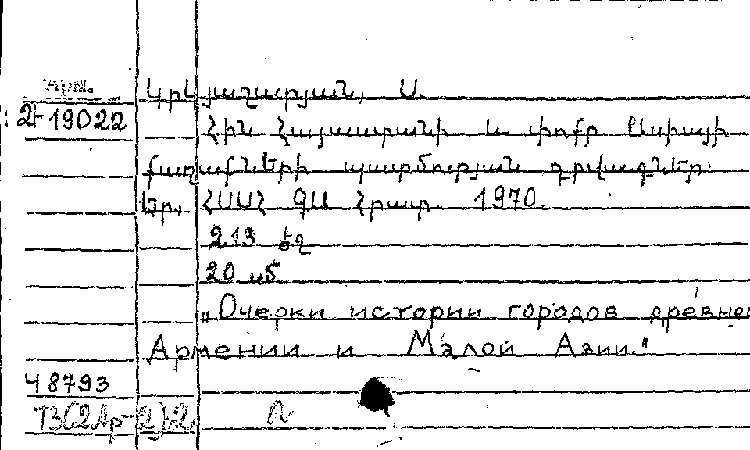 Арм.
Կրկյաշարյան, Ս.
2-19022
Հին Հայաստանի և փոքր Ասիայի
քաղաքների պատմության դրվագներ.
Եր., ՀՍՍՀ ԳԱ հրատ. 1970.
213 էջ
20 սմ
„Очерки истории городов древней
Армении и Малой Азии."
48793